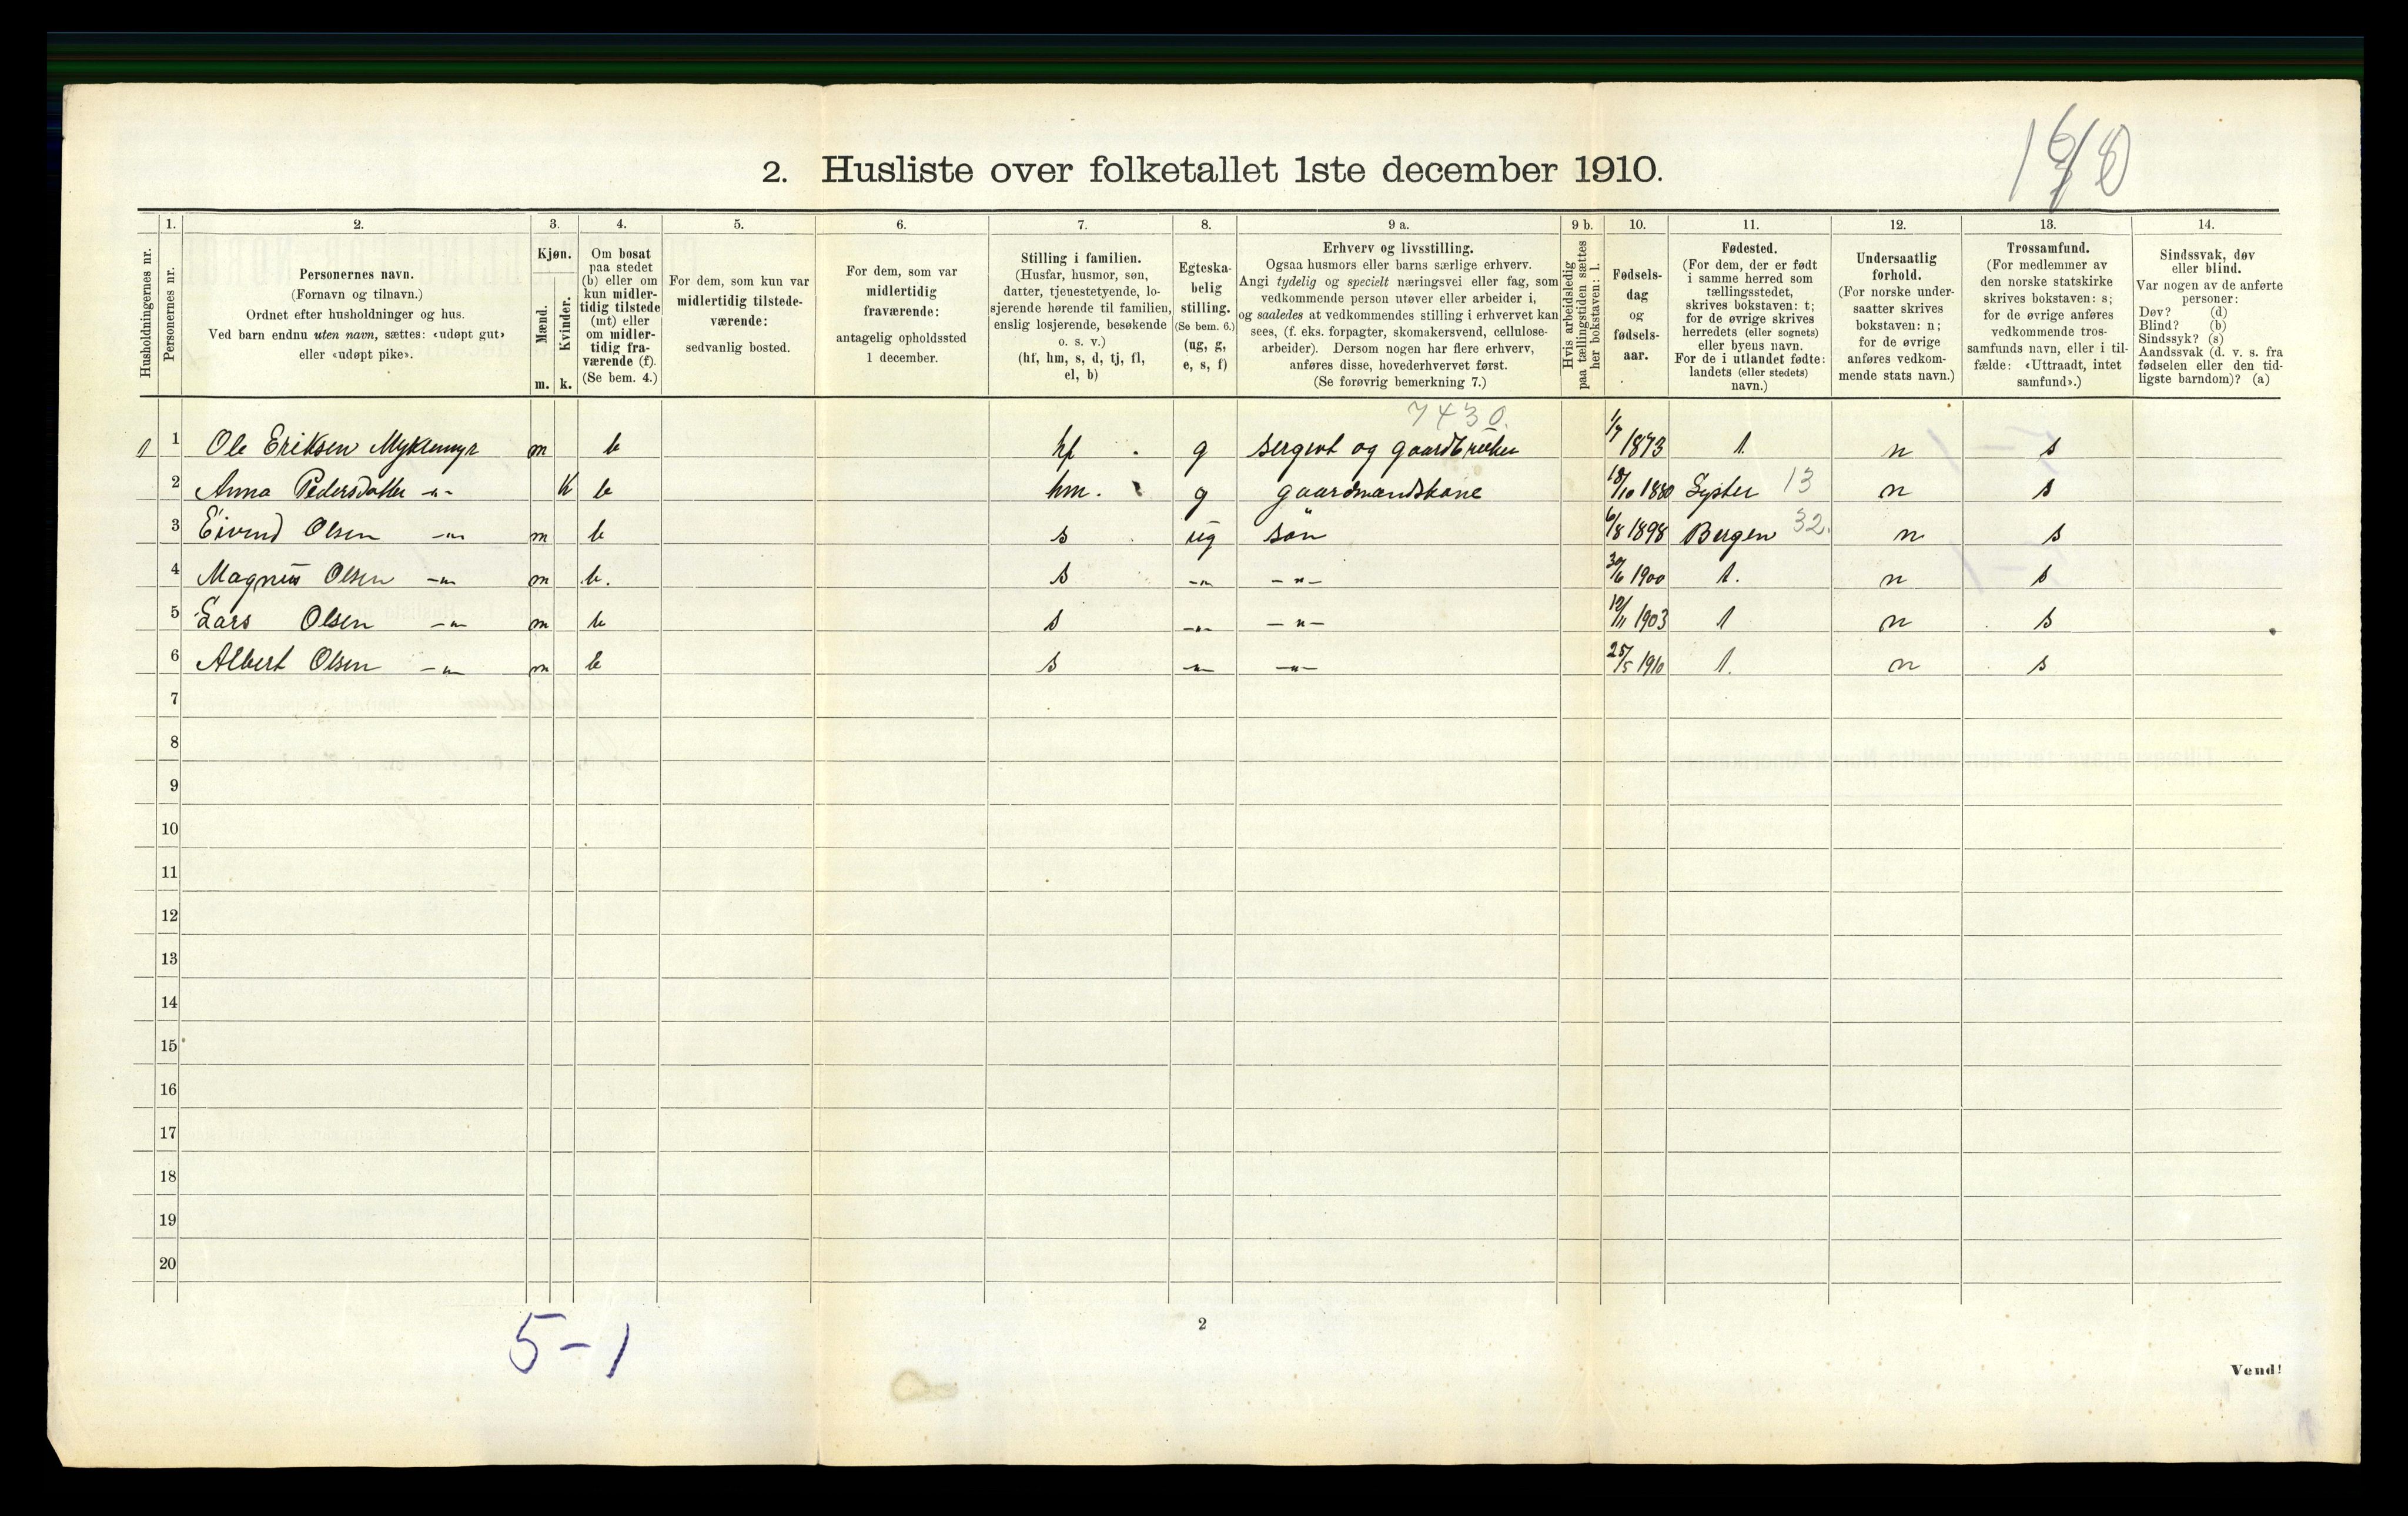 2. Husliste over folketallet 1ste december 1910.
Husholdningernes nr.
1.
Personernes nr.
2.
Personernes navn.
(Fornavn og tilnavn.)
Ordnet efter husholdninger og hus.
Ved barn endnu uten navn, sættes: «udøpt gut»
eller «udøpt pike».
3.
Kjøn.
Mænd.
m.
Kvinder.
k.
4.
Om bosat
paa stedet
(b) eller om
kun midler-
tidig tilstede
(mt) eller
om midler-
tidig fra-
værende (f).
(Se bem. 4.)
5.
For dem, som kun var
midlertidig tilstede-
værende:
sedvanlig bosted.
6.
For dem, som var
midlertidig
fraværende:
antagelig opholdssted
1 december.
7.
Stilling i familien.
(Husfar, husmor, søn,
datter, tjenestetyende, lo-
sjerende hørende til familien,
enslig losjerende, besøkende
o. s. v.)
(hf, hm, s, d, tj, fl,
el, b)
8.
Egteska-
belig
stilling.
(Se bem. 6.)
(ug, g,
e, s, f)
9 a.
Erhverv og livsstilling.
Ogsaa husmors eller barns særlige erhverv.
Angi tydelig og specielt næringsvei eller fag, som
vedkommende person utøver eller arbeider i,
og saaledes at vedkommendes stilling i erhvervet kan
sees, (f. eks. forpagter, skomakersvend, cellulose-
arbeider). Dersom nogen har flere erhverv,
anføres disse, hovederhvervet først.
(Se forøvrig bemerkning 7.)
9 b.
Hvis arbeidsledig
paa tællingstiden sættes
her bokstaven: l.
10.
Fødsels-
dag
og
fødsels-
aar.
11.
Fødested.
(For dem, der er født
i samme herred som
tællingsstedet,
skrives bokstaven: t;
for de øvrige skrives
herredets (eller sognets)
eller byens navn.
For de i utlandet fødte:
landets (eller stedets)
navn.)
12.
Undersaatlig
forhold.
(For norske under-
saatter skrives
bokstaven: n;
for de øvrige
anføres vedkom-
mende stats navn.)
13.
Trossamfund.
(For medlemmer av
den norske statskirke
skrives bokstaven: s;
for de øvrige anføres
vedkommende tros-
samfunds navn, eller i til-
fælde: «Uttraadt, intet
samfund».)
14.
Sindssvak, døv
eller blind.
Var nogen av de anførte
personer:
Døv? (d)
Blind? (b)
Sindssyk? (s)
Aandssvak (d. v. s. fra
fødselen eller den tid-
ligste barndom)? (a)
7430.
1 Ole Eriksen Myklemyr m b hf g sergent og gaardbruker 1/7 1873 t n s
2 Anna Pedersdatter -"- k b hm. g gaardmandskone 18/10 1880 Lyster 13 n s
3 Eivind Olsen -"- m b s ug søn 6/8 1898 Bergen 32. n s
4 Magnus Olsen -"- m b. s -"- -"- 30/6 1900 t. n s
5 Lars Olsen -"- m b s -"- -"- 12/11 1903 t n s
6 Albert Olsen -"- m b s -"- -"- 25/5 1910 t. n s
7
8
9
10
11
12
13
14
15
16
17
18
19
20
5-1
2
Vend!